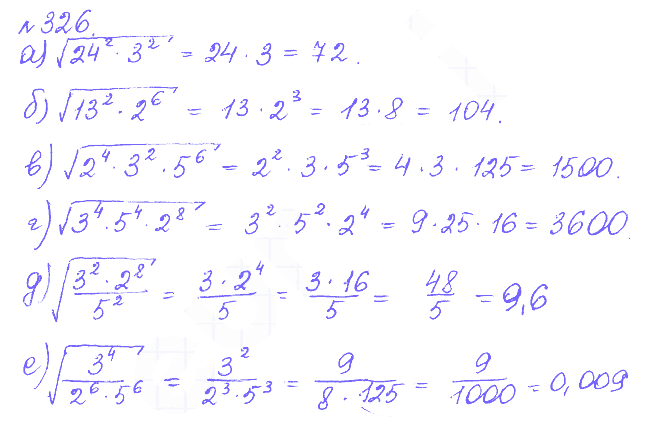 №326.
а) √(24² · 3²) = 24 · 3 = 72.
б) √(13² · 2⁶) = 13 · 2³ = 13 · 8 = 104.
в) √(2⁴ · 3² · 5⁶) = 2² · 3 · 5³ = 4 · 3 · 125 = 1500.
г) √(3⁴ · 5⁴ · 2⁸) = 3² · 5² · 2⁴ = 9 · 25 · 16 = 3600.
д) √((3² · 2⁸)/5²) = (3 · 2⁴)/5 = (3 · 16)/5 = 48/5 = 9,6
е) √(3⁴/(2⁶ · 5⁶)) = 3²/(2³ · 5³) = 9/(8 · 125) = 9/1000 = 0,009